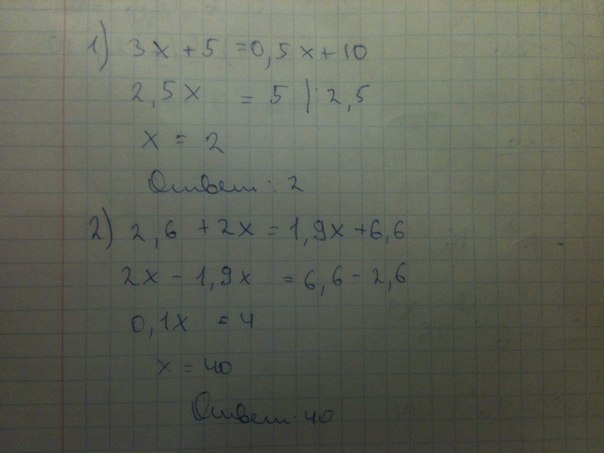 1) 3x + 5 = 0,5x + 10
2,5x = 5 | 2,5
x = 2
Ответ: 2
2) 2,6 + 2x = 1,9x + 6,6
2x - 1,9x = 6,6 - 2,6
0,1x = 4
x = 40
Ответ: 40